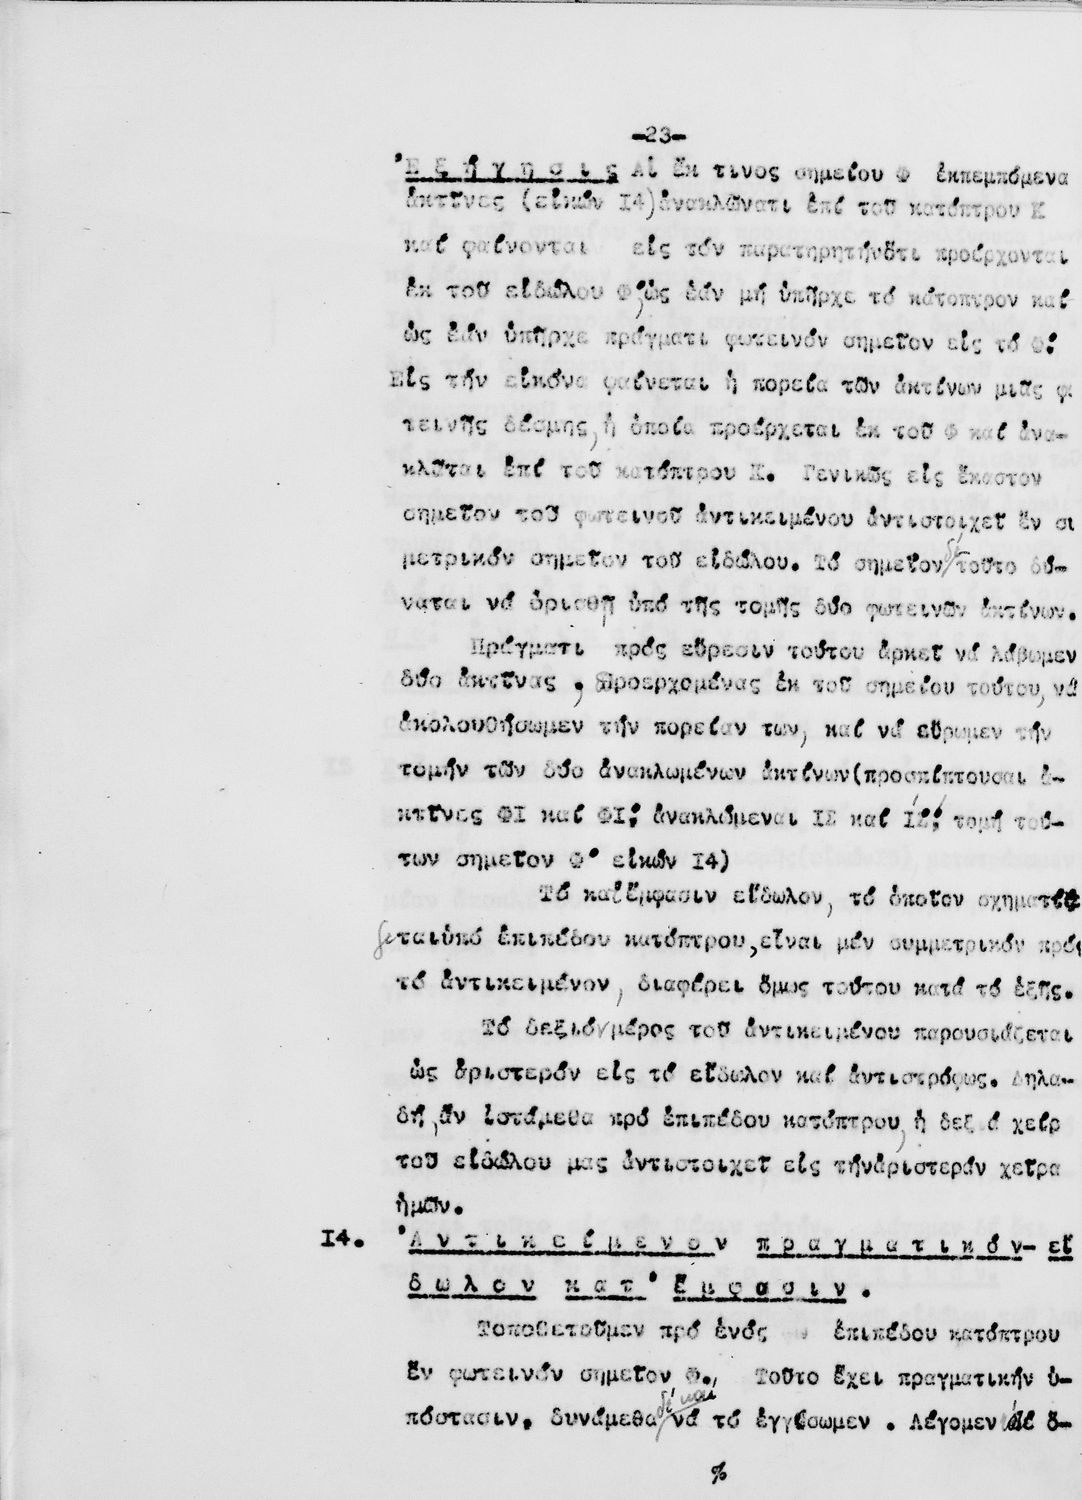 -23-
Ἐξήγησις Αἱ ἔκ τινος σημείου Φ ἐκπεμπόμενα
ἀκτῖνες (εἰκών I4)ἀνακλῶνατι ἐπί τοῦ κατόπτρου Κ
καί φαίνονται εἰς τόν παρατηρητήνὅτι προέρχονται
ἐκ τοῦ εἰδώλου Φ',ὡς ἐάν μή ὑπῆρχε τό κάτοπτρον καί
ὡς ἐάν ὑπῆρχε πράγματι φωτεινόν σημεῖον εἰς τό Φ'.
Εἰς τήν εἰκόνα φαίνεται ἡ πορεία τῶν ἀκτίνων μιᾶς φ
τεινῆς δέσμης, ἡ ὁποία προέρχεται ἐκ τοῦ Φ καί ἀνα-
κλᾶται ἐπί τοῦ κατόπτρου Κ. Γενικῶς εἰς ἕκαστον
σημεῖον τοῦ φωτεινοῦ ἀντικειμένου ἀντιστοιχεῖ ἕν σι
μετρικόν σημεῖον τοῦ εἰδώλου. Τό σημεῖον δέ τοῦτο δύ-
ναται νά ὁρισθῇ ὑπό τῆς τομῆς δύο φωτεινῶν ἀκτίνων.
Πράγματι πρός εὕρεσιν τούτου ἀρκεῖ νά λάβωμεν
δύο ἀκτῖνας , προερχομένας ἐκ τοῦ σημείου τούτου, νά
ἀκολουθήσωμεν τήν πορείαν των, καί νά εὕρωμεν τήν
τομήν τῶν δύο ἀνακλωμένων ἀκτίνων(προσπίπτουσαι ἀ-
κτῖνες ΦΙ καί ΦΙ', ἀνακλώμεναι ΙΣ καί Ι'Σ', τομή τού-
των σημεῖον Φ' εἰκών I4)
Τό κατ'ἔμφασιν εἴδωλον, τό ὁποῖον σχηματί
ζεταιὑπό ἐπιπέδου κατόπτρου,εἶναι μέν συμμετρικόν πρός
τό ἀντικειμένον, διαφέρει ὅμως τούτου κατά τό ἑξῆς.
Τό δεξιόν μέρος τοῦ ἀντικειμένου παρουσιάζεται
ὡς ἀριστερόν εἰς τό εἴδωλον καί ἀντιστρόφως. Δηλα-
δή,ἄν ἱστάμεθα πρό ἐπιπέδου κατόπτρου, ἡ δεξ ά χείρ
τοῦ εἰδώλου μας ἀντιστοιχεῖ εἰς τήνἀριστεράν χεῖρα
ἡμῶν.
I4. Ἀντικείμενον πραγματικόν- εἴ
δωλον κατ' ἔμφασιν .
Τοποθετοῦμεν πρό ἑνός ἐπιπέδου κατόπτρου
ἕν φωτεινόν σημεῖον Φ. Τοῦτο ἔχει πραγματικήν ὑ-
πόστασιν, δυνάμεθα δέ καί νά τό ἐγγίσωμεν . Λέγομεν δέ ὅ-
%